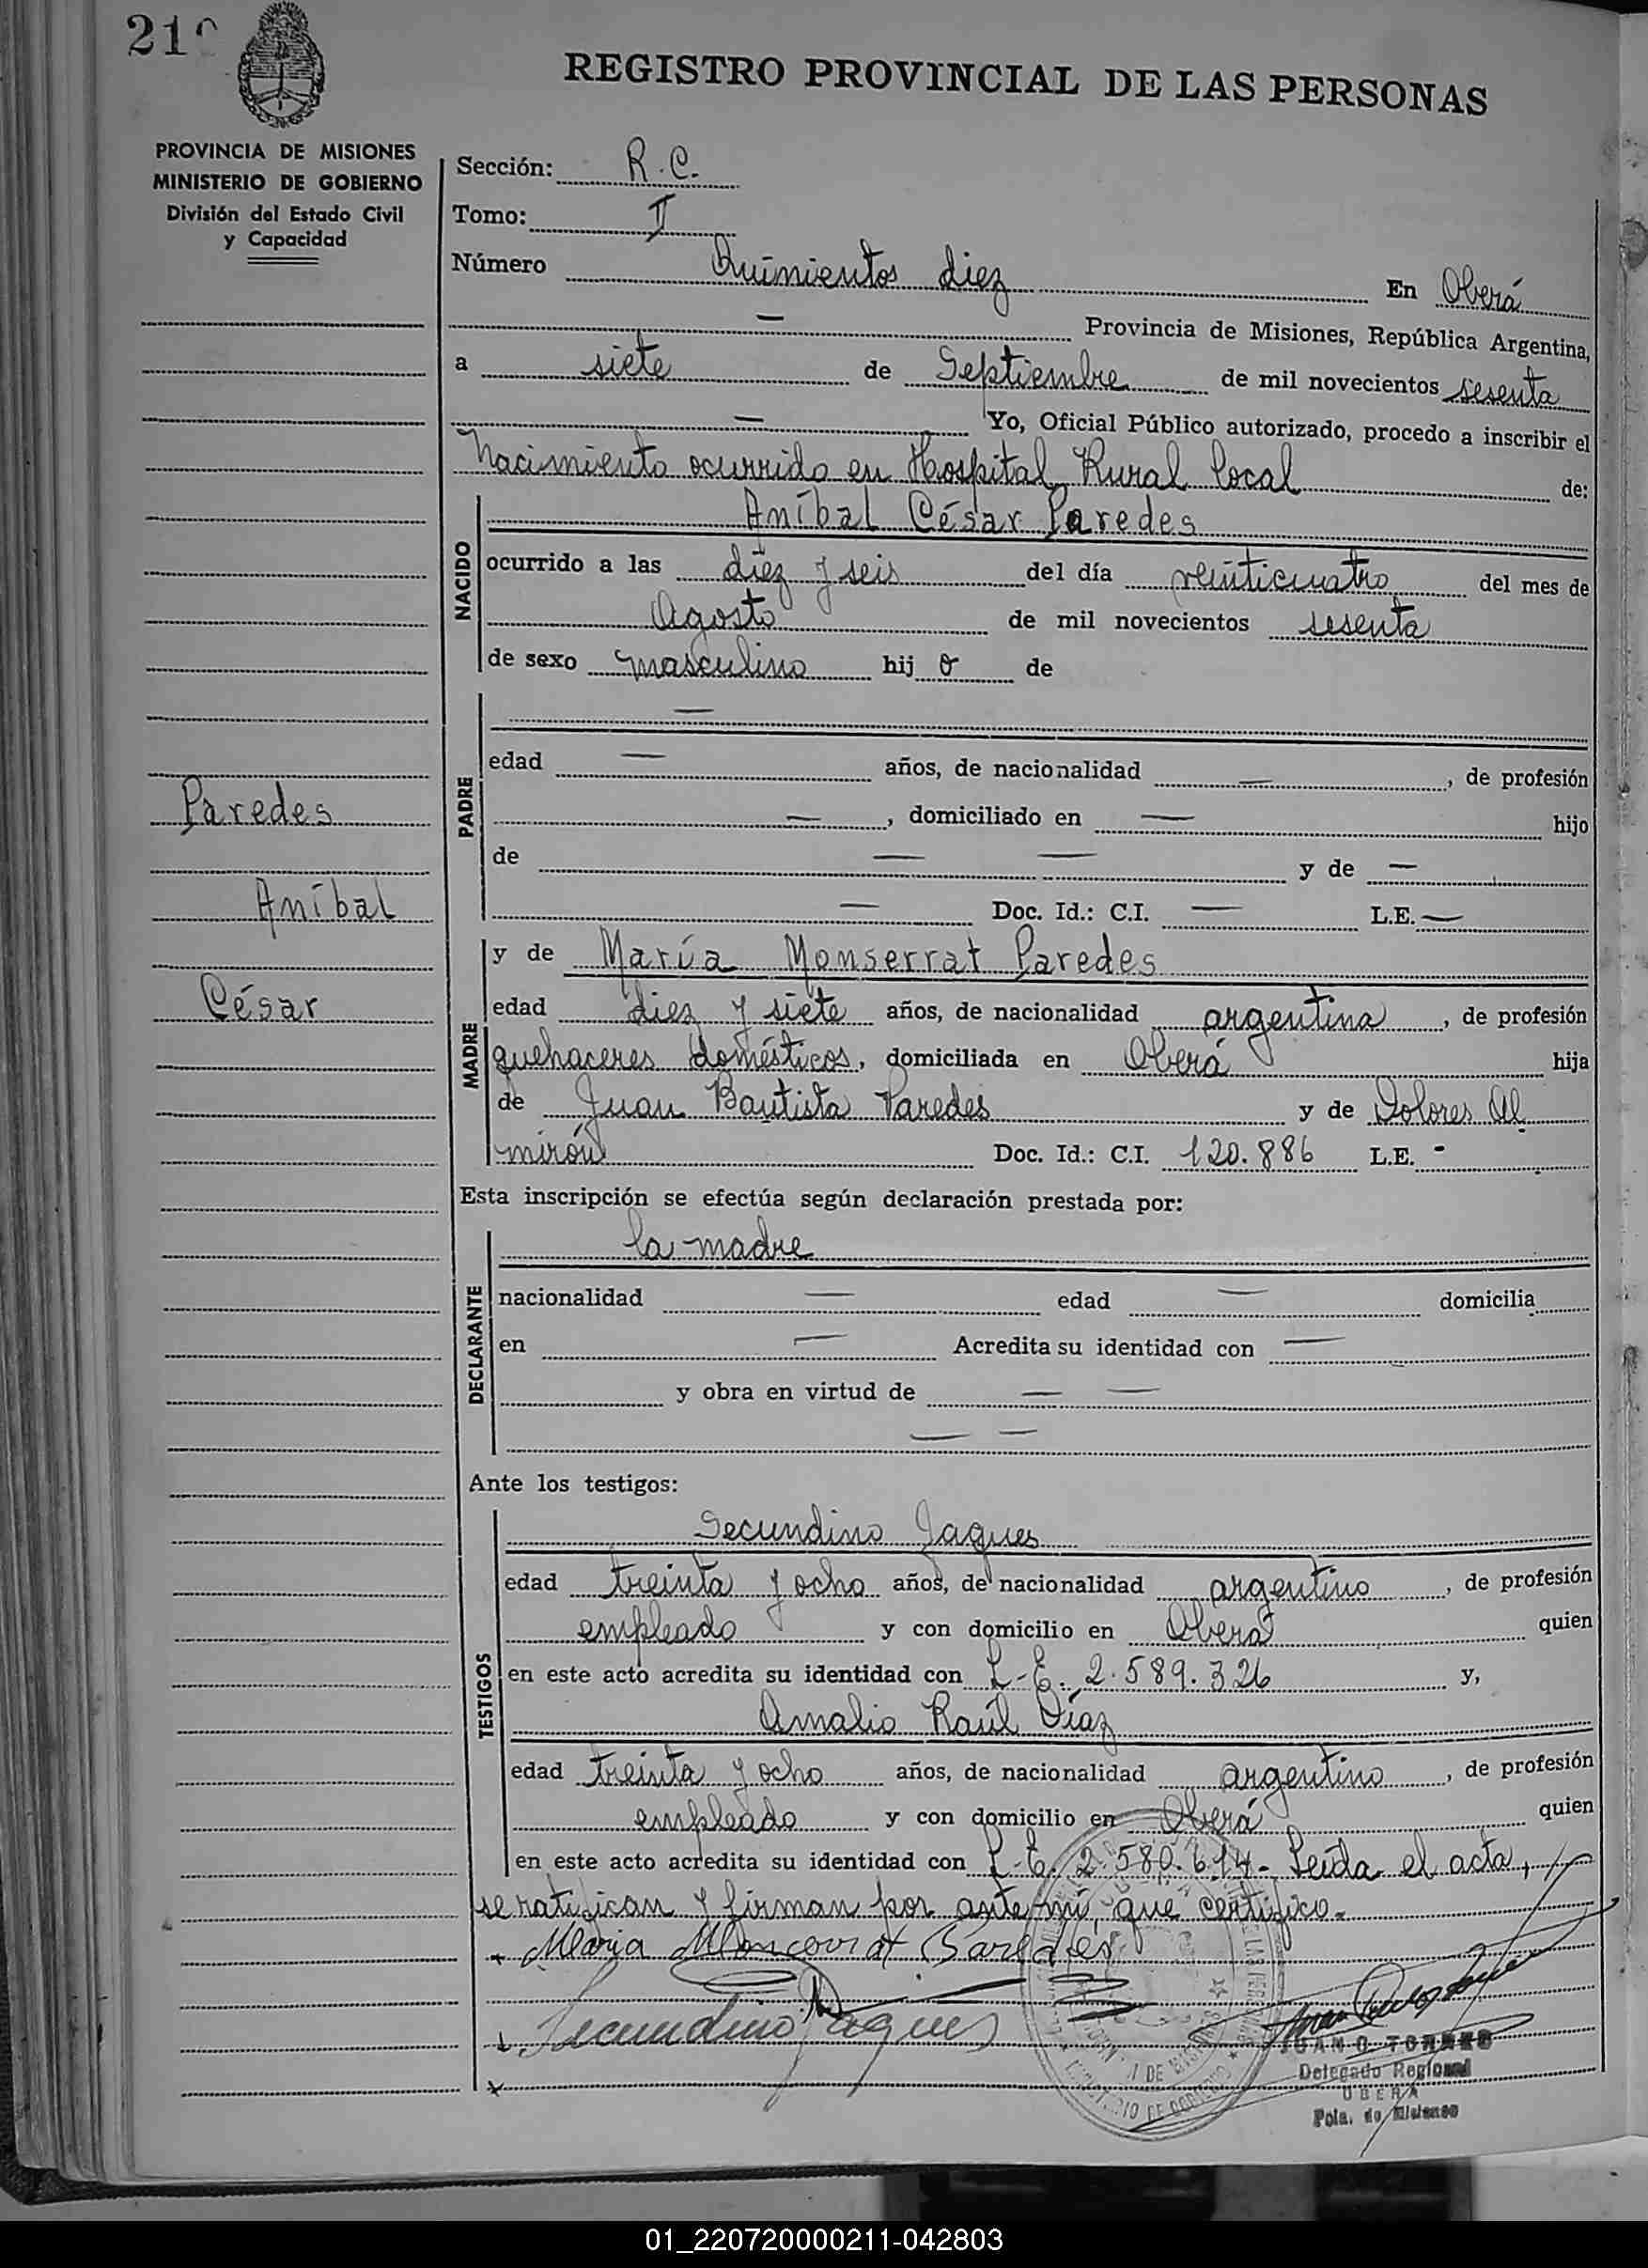 21
REGISTRO PROVINCIAL DE LAS PERSONAS
PROVINCIA DE MISIONES
MINISTERIO DE GOBIERNO
División del Estado Civil
y Capacidad
Sección: R.C.
Tomo: II
Número Quinientos diez En Oberá
— Provincia de Misiones, República Argentina,
a siete de Septiembre de mil novecientos sesenta
— Yo, Oficial Público autorizado, procedo a inscribir el
Nacimiento ocurrido en Hospital Rural local de:
NACIDO
Aníbal César Paredes
ocurrido a las diez y seis del día veinticuatro del mes de
Agosto de mil novecientos sesenta
de sexo masculino hij o de
PADRE
—
edad — años, de nacionalidad —, de profesión
—, domiciliado en — hijo
de — — y de —
— Doc. Id.: C.I. — L.E. —
Paredes
Aníbal
César
MADRE
y de María Monserrat Paredes
edad diez y siete años, de nacionalidad argentina, de profesión
quehaceres domésticos, domiciliada en Oberá hija
de Juan Bautista Paredes y de Dolores Al
mirón Doc. Id.: C.I. 120.886 L.E. -
Esta inscripción se efectúa según declaración prestada por:
DECLARANTE
la madre
nacionalidad — edad — domicilia
en — Acredita su identidad con —
y obra en virtud de — —
— —
Ante los testigos:
TESTIGOS
Secundino Jaques
edad treinta y ocho años, de nacionalidad argentino, de profesión
empleado y con domicilio en Oberá quien
en este acto acredita su identidad con L.E. 2.589.326 y,
Amalio Raúl Díaz
edad treinta y ocho años, de nacionalidad argentino, de profesión
empleado y con domicilio en Oberá quien
en este acto acredita su identidad con L.E. 2.580.614- Leída el acta,
se ratifican y firman por ante mí, que certifico-
Maria Moncerrat Paredes
Secundino Jaques
JUAN O. TORRES
Delegado Regional
OBERA
Pcia. de Misiones
01_220720000211-042803